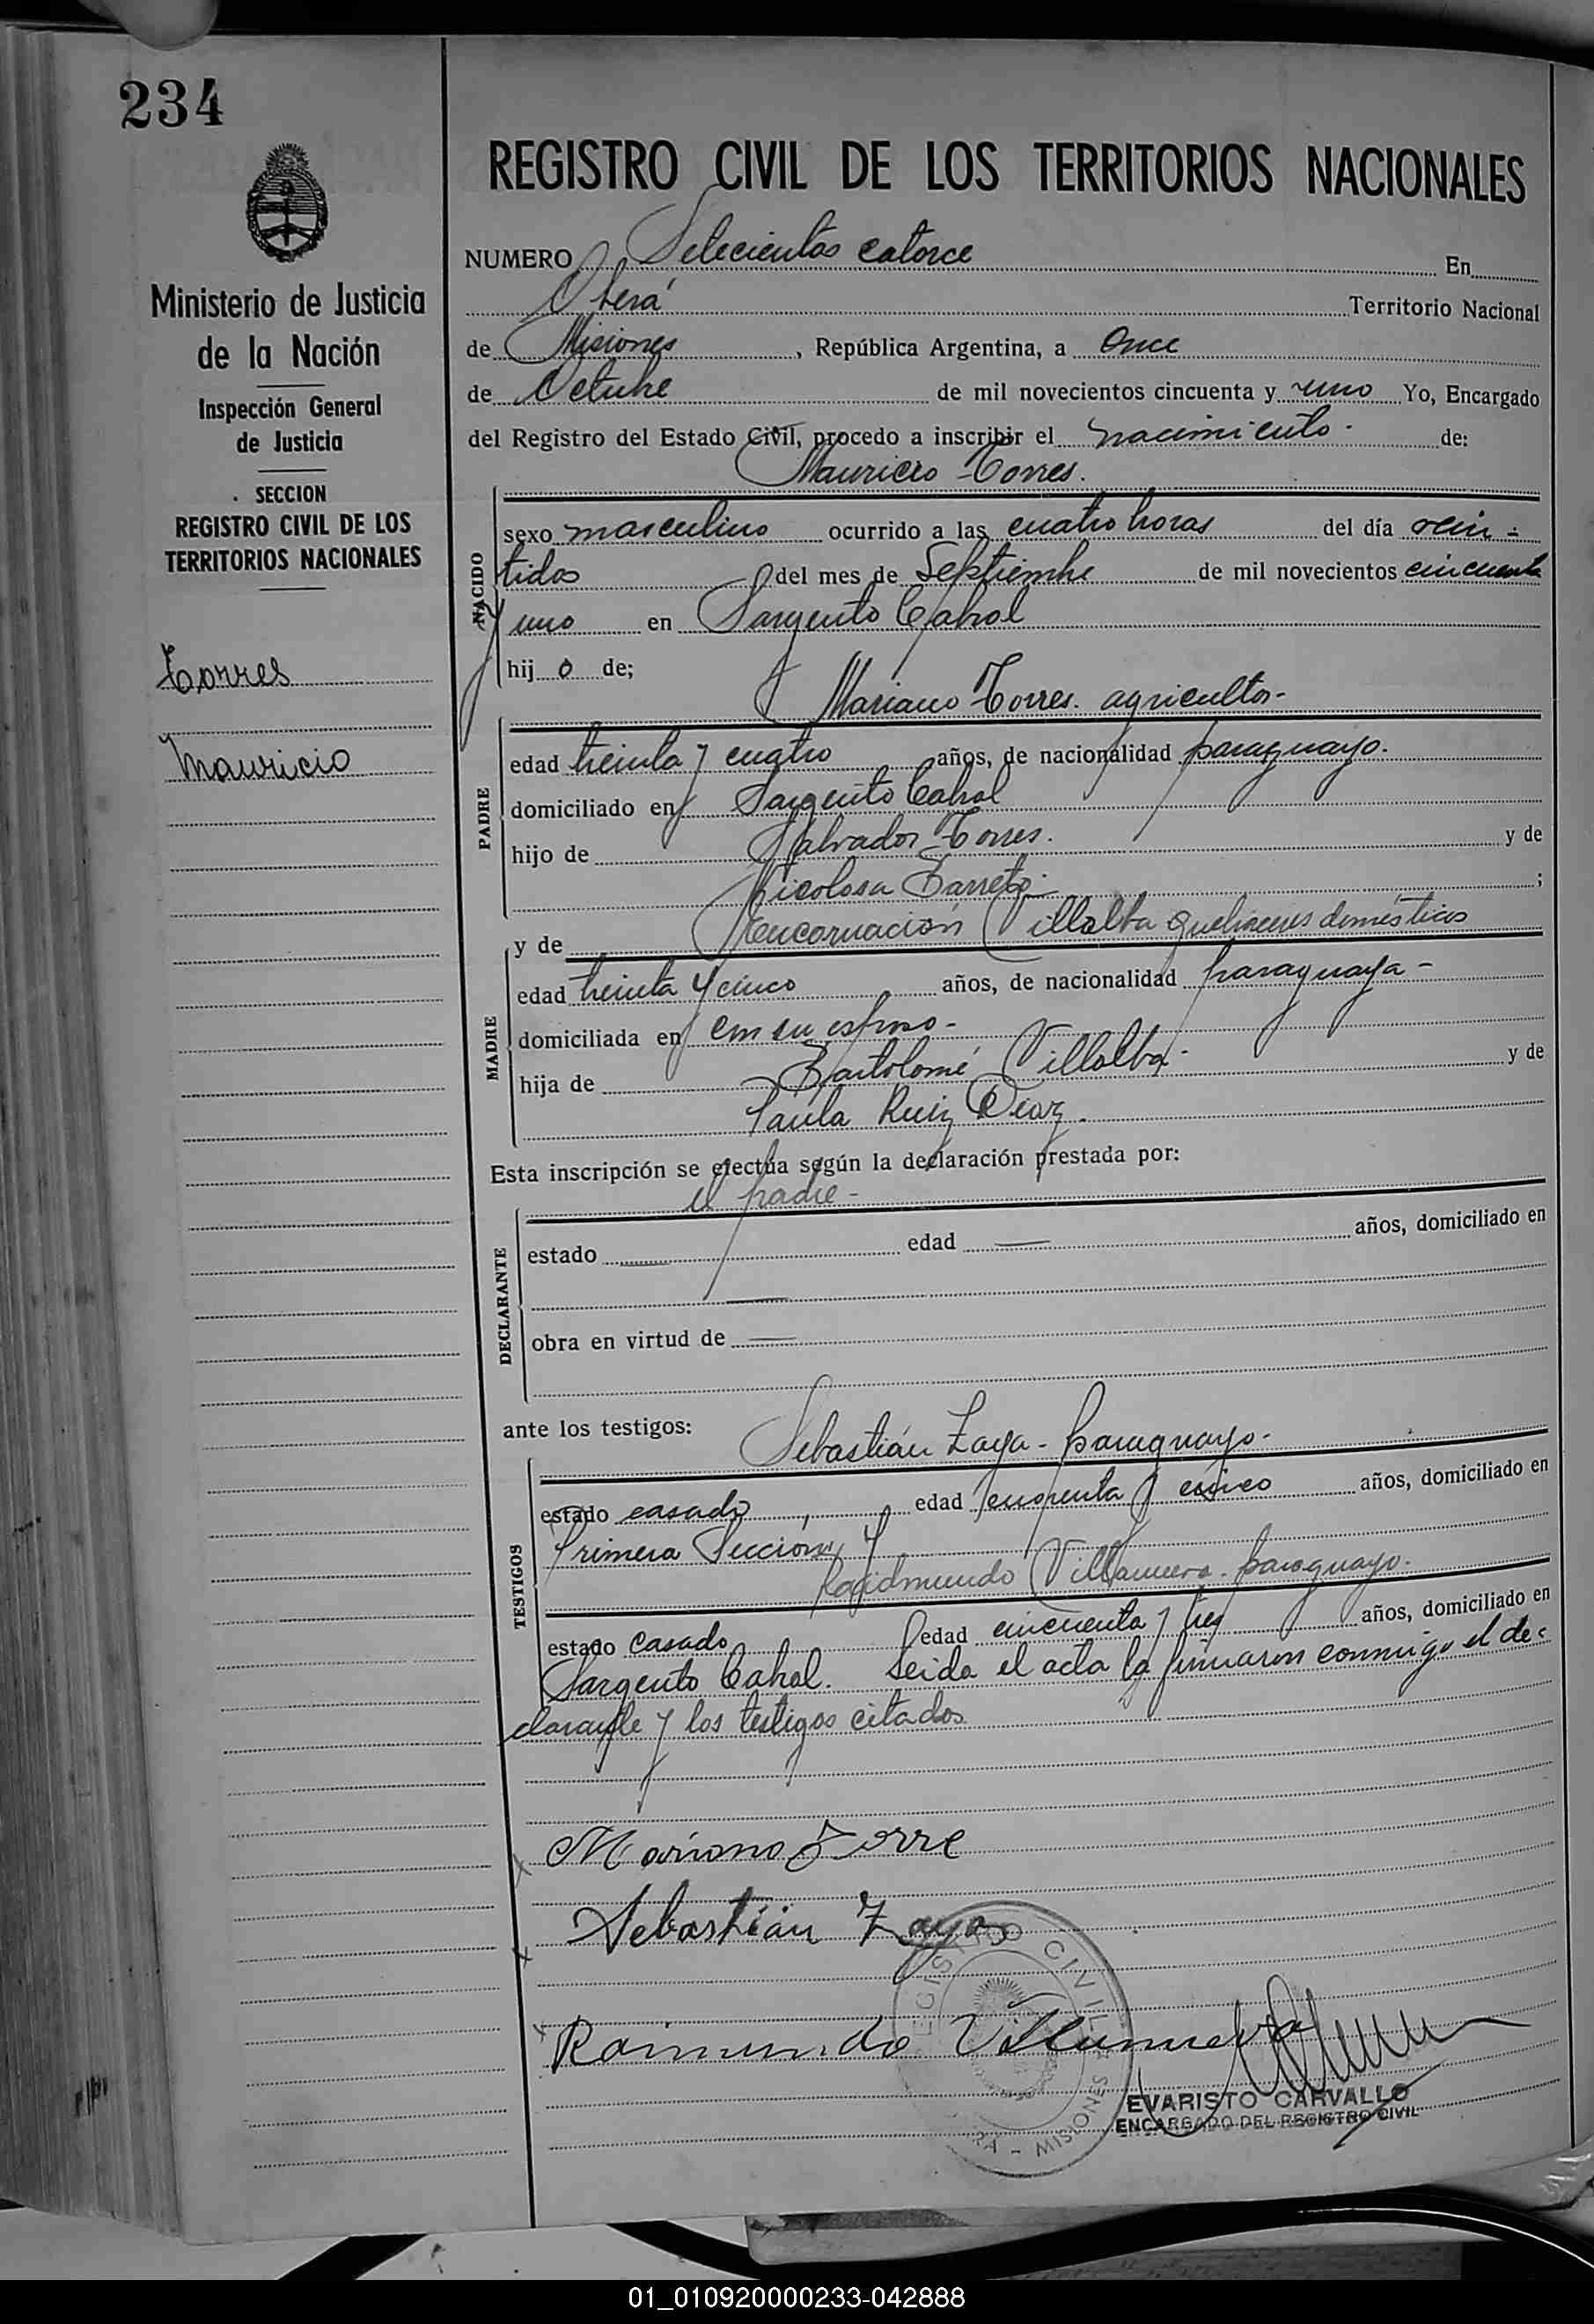 234
REGISTRO CIVIL DE LOS TERRITORIOS NACIONALES
Ministerio de Justicia
de la Nación
Inspección General
de Justicia
SECCION
REGISTRO CIVIL DE LOS
TERRITORIOS NACIONALES
Torres
Mauricio
NUMERO Setecientos catorce En
Oberá Territorio Nacional
de Misiones, República Argentina, a Once
de Octubre de mil novecientos cincuenta y uno Yo, Encargado
del Registro del Estado Civil, procedo a inscribir el nacimiento de:
Mauricio Torres.
NACIDO
sexo masculino ocurrido a las cuatro horas del día vein-
tidos del mes de Septiembre de mil novecientos cincuenta
y uno en Sargento Cabral
hijo de;
Mariano Torres. agricultor-
PADRE
edad treinta y cuatro años, de nacionalidad paraguayo.
domiciliado en Sargento Cabral
hijo de Salvador Torres. y de
Nicolasa Barreto ;
y de Encarnación Villalba quehaceres domésticos
MADRE
edad treinta y cinco años, de nacionalidad paraguaya-
domiciliada en con su esposo-
hija de Bartolomé Villalba- y de
Paula Ruiz Diaz.
Esta inscripción se efectúa según la declaración prestada por:
el padre-
DECLARANTE
estado — edad — años, domiciliado en
—
obra en virtud de —
ante los testigos: Sebastián Zaya- paraguayo-
TESTIGOS
estado casado, edad cincuenta y cinco años, domiciliado en
Primera Sección, y
Raidmundo Villanueva- paraguayo.
estado casado edad cincuenta y tres años, domiciliado en
Sargento Cabral. Leida el acta la firmaron conmigo el de-
clarante y los testigos citados
x Mariano Torre
x Sebastián Zaya
x Raimundo Villanueva
REGISTRO CIVIL
RÁ - MISIONES
EVARISTO CARVALLO
ENCARGADO DEL REGISTRO CIVIL
01_010920000233-042888